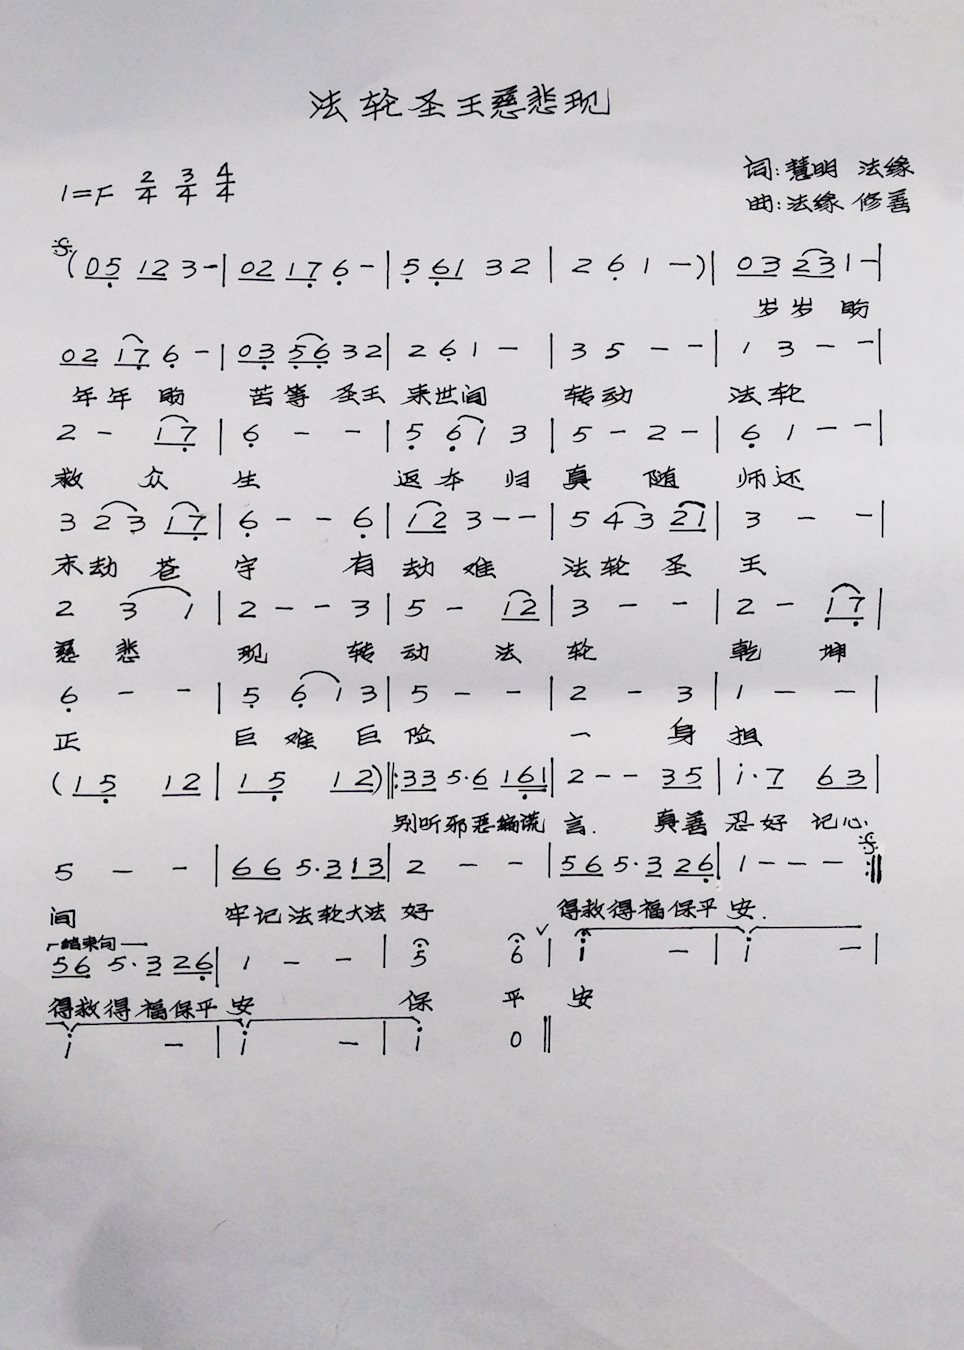 法轮圣王慈悲现
1=F 2/4 3/4 4/4
词:慧明 法缘
曲:法缘 修善
(05 12 3-|02 17 6-|5 61 32|2 6 1 -)|03 23 1-|
岁岁 盼
02 17 6 -|03 56 32|2 6 1 -|3 5 - -|1 3 - -|
年年 盼 苦等 圣王 来世间 转动 法轮
2 - 17|6 - -|5 6 1 3|5 - 2 -|6 1 - -|
救 众 生 返本 归 真 随 师还
3 2 3 17|6 - - 6|12 3 - -|5 4 3 21|3 - -|
末劫 苍 宇 有 劫 难 法轮 圣 王
2 3 1|2 - - 3|5 - 12|3 - -|2 - 17|
慈 悲 现 转 动 法 轮 乾 坤
6 - -|5 6 1 3|5 - -|2 - 3|1 - -|
正 巨 难 巨 险 一 身 担
(15 12|15 12)‖:33 5·6 161|2 - - 35|i·7 63|
别听邪恶编谎 言. 真善 忍好 记心
5 - -|66 5·3 13|2 - -|56 5·3 26|1 - - -:‖
间 牢记法轮大法 好 得救得福保平 安.
结束句
56 5·3 26|1 - -|5 6 ∨|i -|i -|
得救得福保平 安 保 平 安
i -|i -|i 0‖